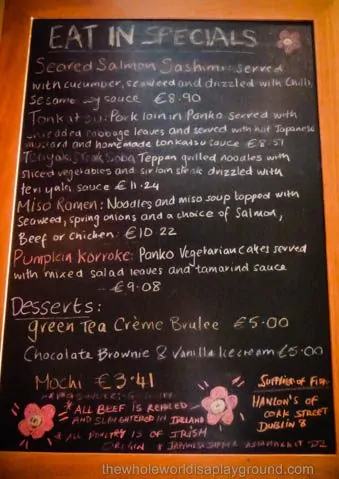 EAT IN SPECIALS
Seared Salmon Sashimi: served
with cucumber, seaweed and drizzled with Chilli,
Sesame soy sauce €8.90
Tonkatsu: Pork loin in Panko served with
shredded cabbage leaves and served with hot Japanese
mustard and homemade tonkatsu sauce €8.51
Teriyaki Steak Soba: Teppan grilled noodles with
sliced vegetables and sirloin steak drizzled with
teriyaki sauce €11.24
Miso Ramen: Noodles and miso soup topped with
Seaweed, spring onions and a choice of Salmon,
Beef or chicken: €10.22
Pumpkin Korroke: Panko Vegetarian cakes served
with mixed salad leaves and tamarind sauce
€9.08
Desserts:
green Tea Crème Brulee €5.00
Chocolate Brownie & Vanilla Icecream £5.00
Mochi €3.41
* ALL BEEF IS REARED
AND SLAUGHTERED IN IRELAND
* ALL POULTRY IS OF IRISH
ORIGIN
SUPPLIER OF FISH
HANLON'S OF
CORK STREET
DUBLIN 8
ASIAMARKET D2
thewholeworldisaplayground.com